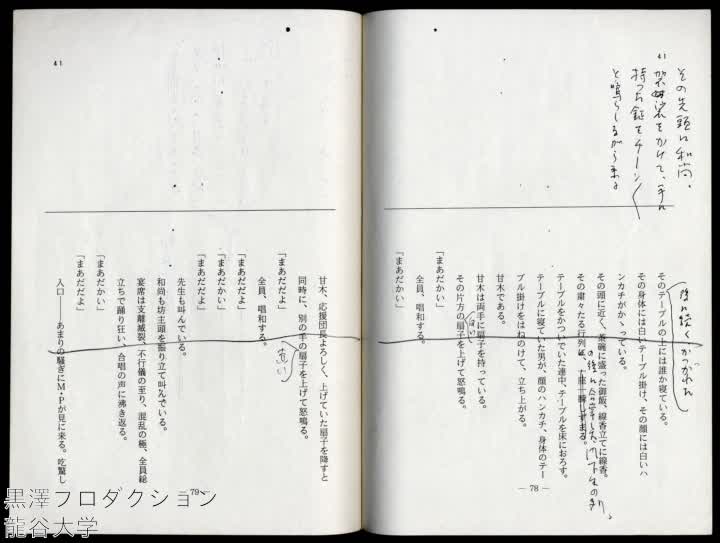 41
その先頭に和尚、
袈裟をかけて、手に
持つた鉦をチーン〱
と鳴らしながら来る
後に続くかつがれた
そのテーブルの上には誰か寝ている。
その身体には白いテーブル掛け、その顔には白いハ
ンカチがかゝっている。
その頭に近く、茶碗に盛った御飯、線香立てに線香。
その粛々たる行列に、一座一瞬しずまる。
テーブルをかついでいた連中、テーブルを床におろす。
テーブルに寝ていた男が、顔のハンカチ、身体のテー
ブル掛けをはねのけて、立ち上がる。
甘木である。
甘木は両手に扇子を持っている。
その片方の扇子を上げて怒鳴る。
白い
「まあだかい」
全員、唱和する。
「まあだかい」
― 78 ―
41
甘木、応援団長よろしく、上げていた扇子を降すと
同時に、別の手の扇子を上げて怒鳴る。
「まあだだよ」
全員、唱和する。
「まあだだよ」
「まあだかい」
「まあだだよ」
先生も叫んでいる。
和尚も坊主頭を振り立て叫んでいる。
宴席は支離滅裂、不行儀の至り、混乱の極、全員総
立ちで踊り狂い、合唱の声に沸き返る。
「まあだかい」
「まあだだよ」
入口――あまりの騒ぎにＭ・Ｐが見に来る。吃驚し
― 79 ―
黒澤プロダクション
龍谷大学